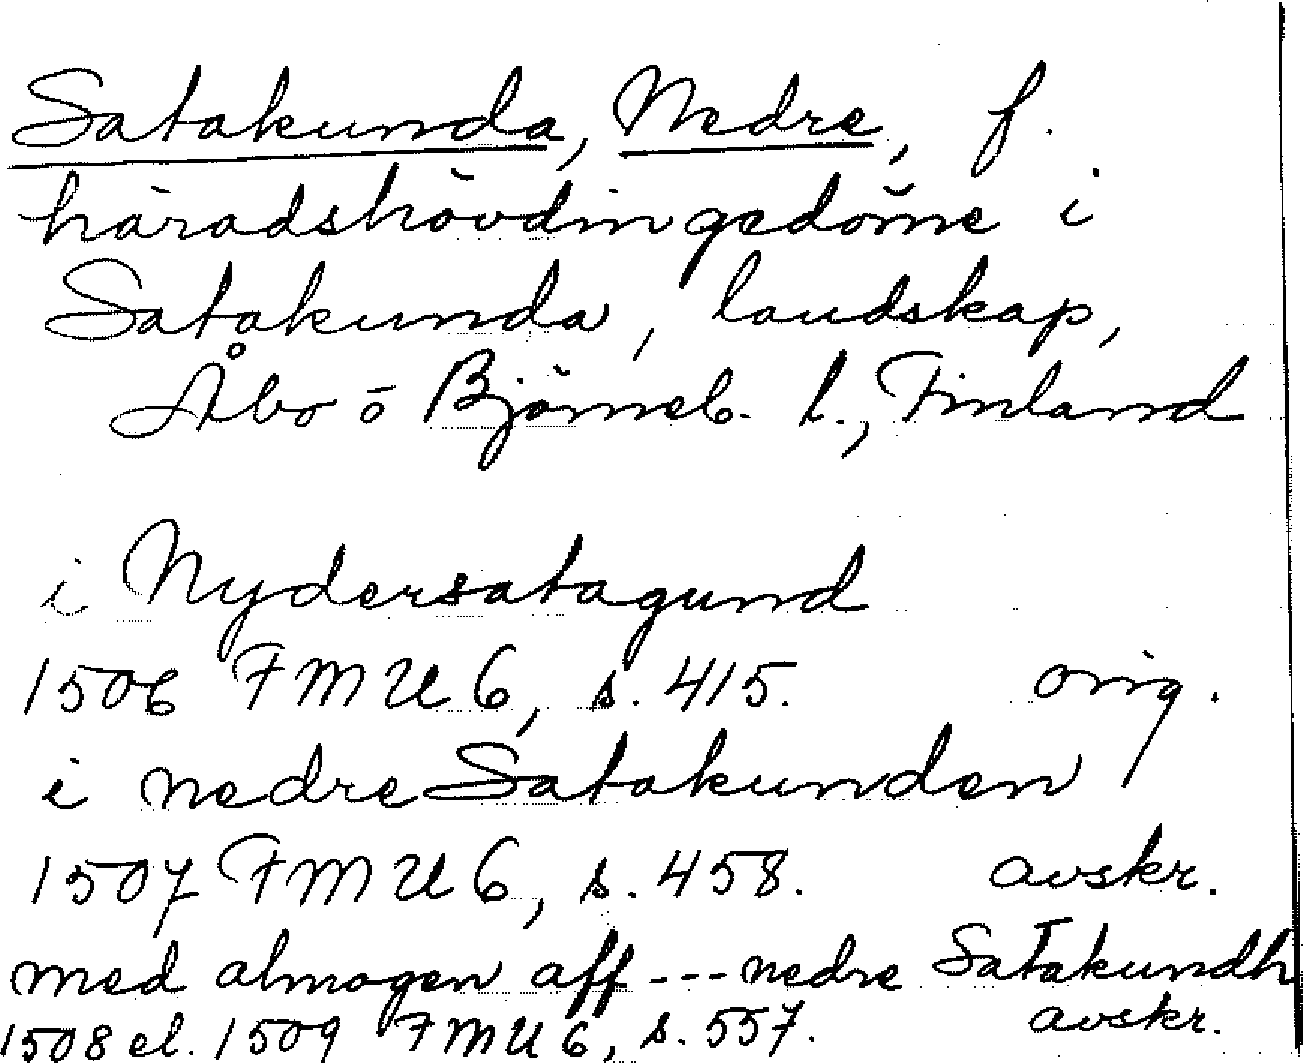 Satakunda, Nedre, f.
häradshövdingedöme i
Satakunda, landskap,
Åbo o Björneb. l., Finland
i Nydersatagund
1506 FMU 6, s. 415. orig.
i nedre Satakunden
1507 FMU 6, s. 458. avskr.
med almogen aff --- nedre Satakundh
1508 el. 1509 FMU 6, s. 557. avskr.